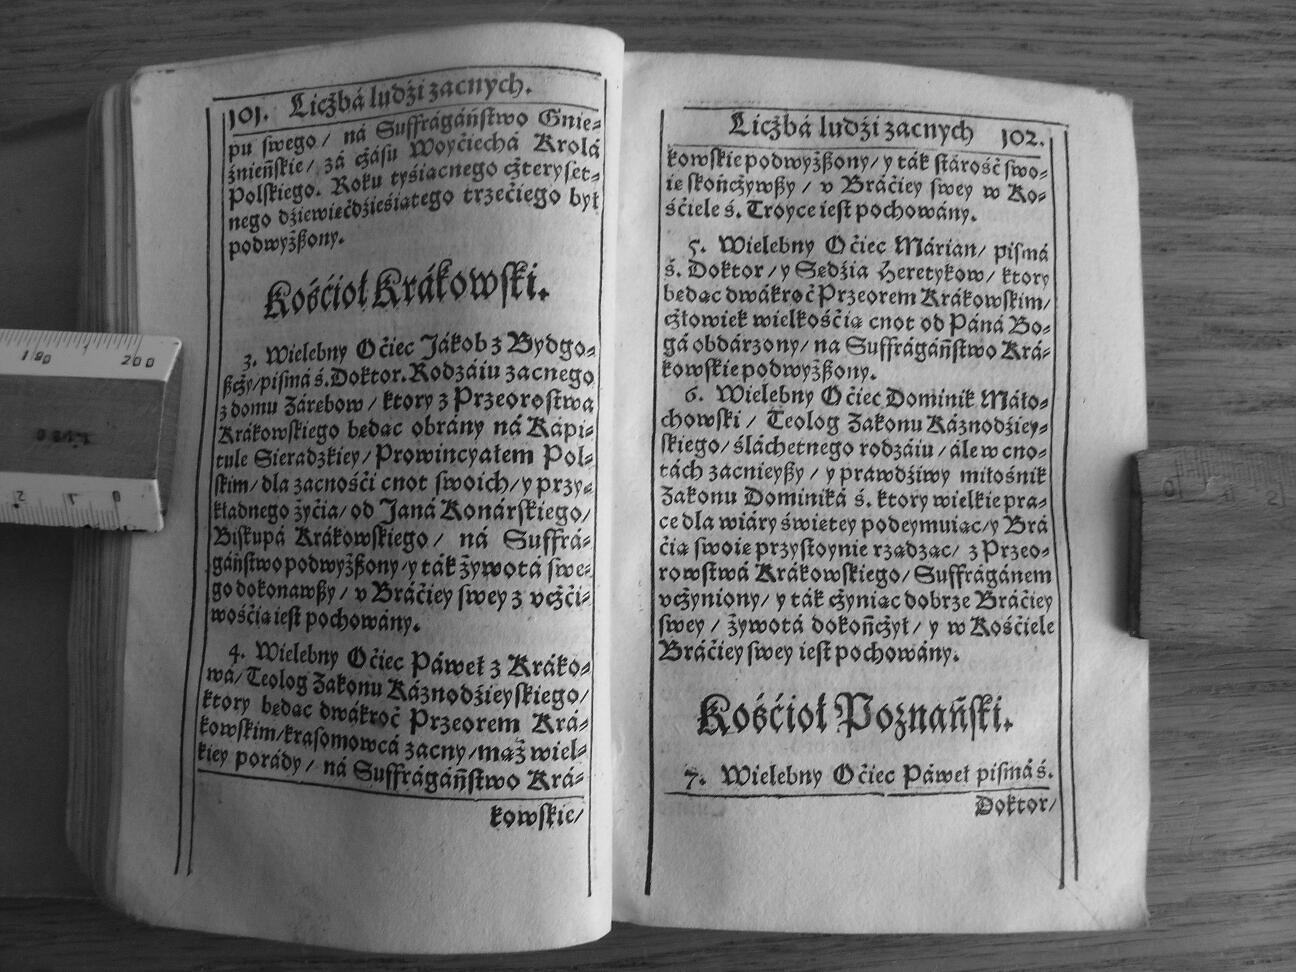 101. Liczbá ludźi zacnych.
pu swego / ná Suffrágáństwo Gnie-
źnieńskie / zá czásu Woyćiechá Krolá
Polskiego. Roku tyśiącnego czteryset-
nego dźiewiećdźieśiątego trzećiego był
podwyższony.
Kośćioł Krákowski.
3. Wielebny Oćiec Jákob z Bydgo-
szczy / pismá ś. Doktor. Rodzáiu zacnego
z domu Zárebow / ktory z Przeorostwa
Krákowskiego bedąc obrány ná Kápi-
tule Sieradzkiey / Prowincyałem Pol-
skim / dla zacnośći cnot swoich / y przy-
kładnego życia / od Janá Konárskiego /
Biskupá Krákowskiego / ná Suffrá-
gáństwo podwyższony / y ták żywotá swe-
go dokonawszy / v Bráćiey swey z vczći-
wośćią iest pochowány.
4. Wielebny Oćiec Páweł z Kráko-
wá / Teolog Zakonu Káznodźieyskiego /
ktory bedąc dwákroć Przeorem Krá-
kowskim / krásomowcá zacny / mąż wiel-
kiey porády / ná Suffrágáństwo Krá-
kowskie /
Liczbá ludźi zacnych 102.
kowskie podwyższony / y ták stárość swo-
ie skończywszy / v Bráćiey swey w Ko-
śćiele ś. Troyce iest pochowány.
5. Wielebny Oćiec Márian / pismá
ś. Doktor / y Sedźia Heretykow / ktory
bedąc dwákroć Przeorem Krákowskim /
człowiek wielkośćią cnot od Páná Bo-
gá obdárzony / na Suffrágáństwo Krá-
kowskie podwyższony.
6. Wielebny Oćiec Dominik Máło-
chowski / Teolog Zakonu Káznodźiey-
skiego / śláchetnego rodzáiu / ále w cno-
tách zacnieyszy / y prawdźiwy miłośnik
Zakonu Dominiká ś. ktory wielkie pra-
ce dla wiáry świetey podeymuiąc / y Brá
ćią swoie przystoynie rządząc / z Przeo-
rowstwá Krákowskiego / Suffrágánem
vczyniony / y ták czyniąc dobrze Bráćiey
swey / żywotá dokończył / y w Kośćiele
Bráćiey swey iest pochowány.
Kośćioł Poznański.
7. Wielebny Oćiec Páweł pismá ś.
Doktor /
190
200
2 1 0
0 1 2